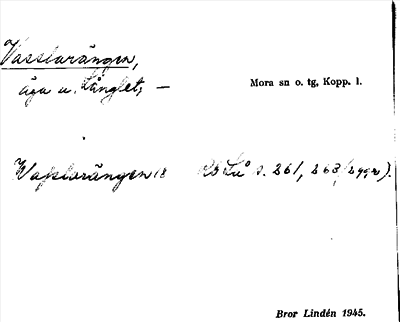 Vasslorängen,
äga u. Långlet, –
Mora sn o. tg, Kopp. l.
Wasslorängen 18 s. 261, 263,
Bror Lindén 1945.